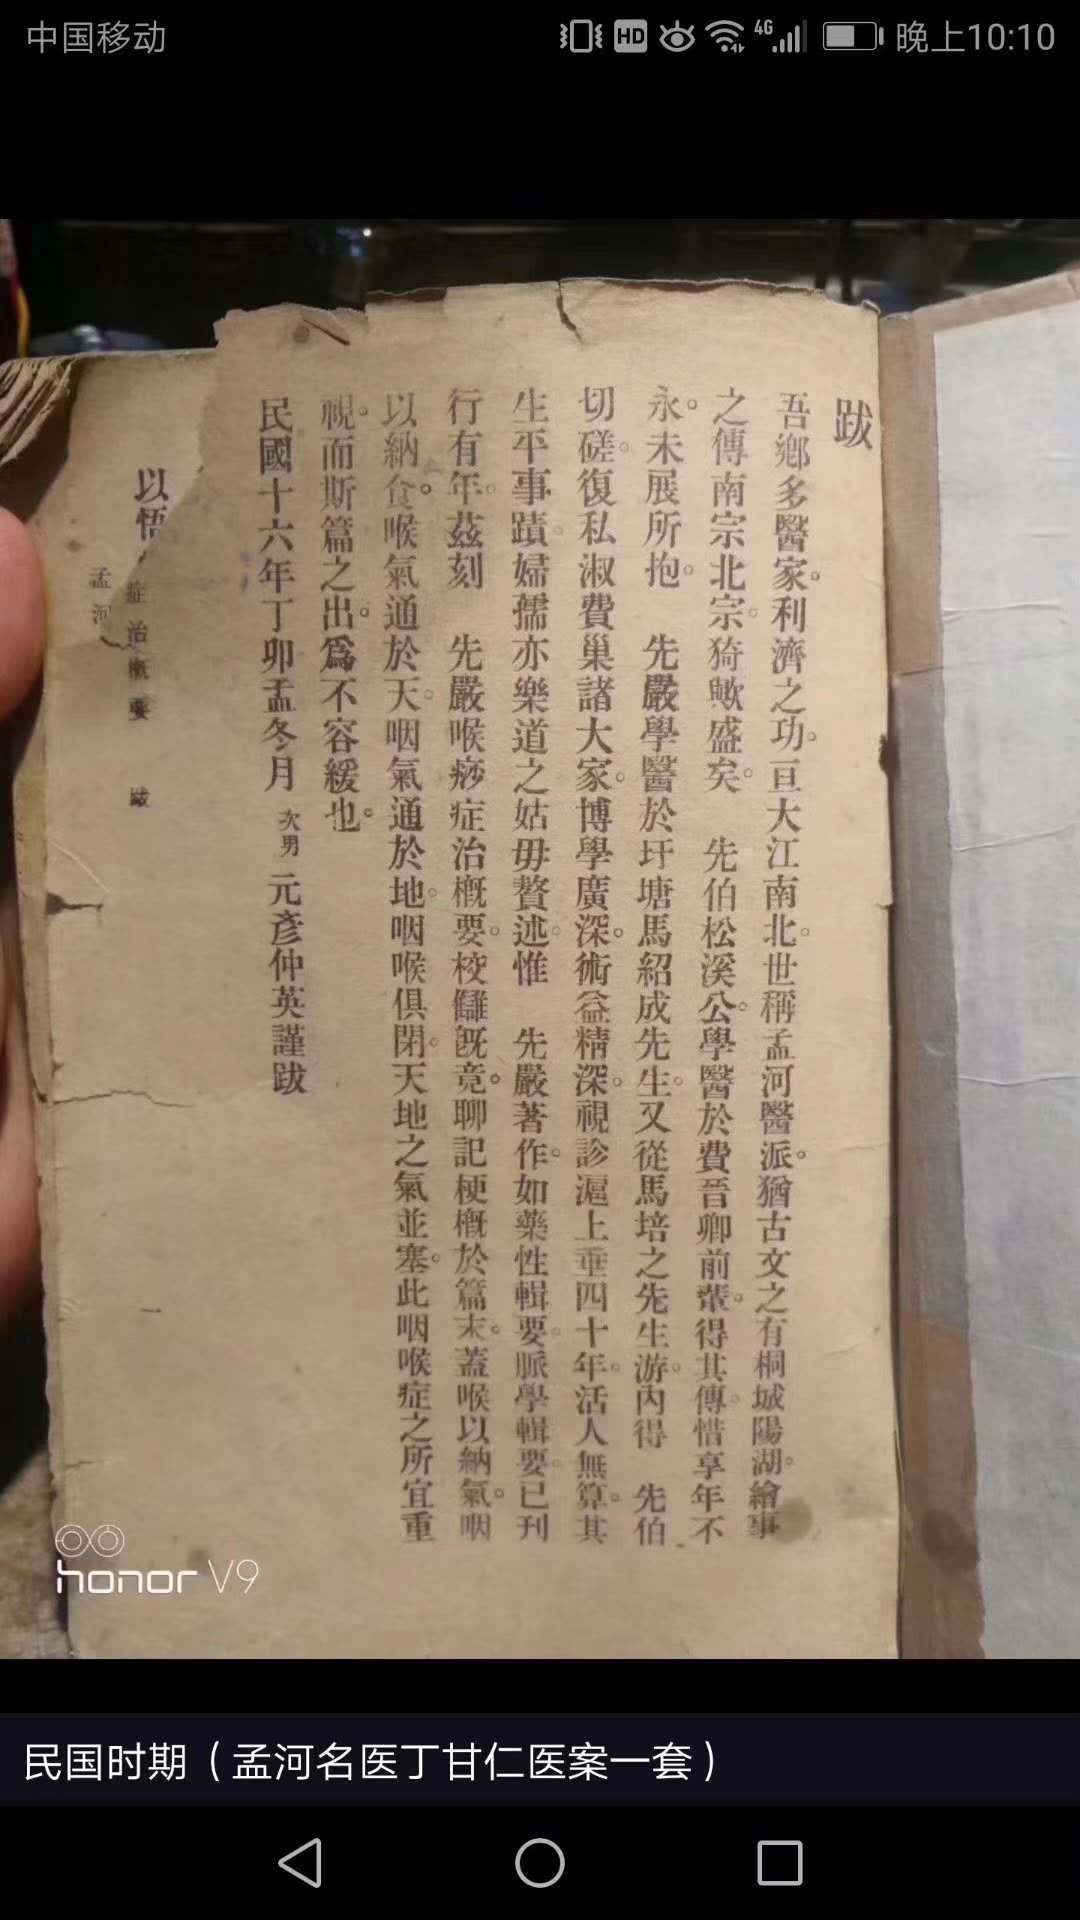 中国移动 HD 4G 晚上10:10
跋
吾鄉多醫家。利濟之功。亘大江南北。世稱孟河醫派。猶古文之有桐城陽湖。繪事
之傳南宗北宗。猗歟盛矣。 先伯松溪公。學醫於費晉卿前輩。得其傳。惜享年不
永。未展所抱。 先嚴學醫於圩塘馬紹成先生。又從馬培之先生游。內得 先伯
切磋。復私淑費巢諸大家。博學廣深。術益精深。視診滬上垂四十年。活人無算。其
生平事蹟。婦孺亦樂道之。姑毋贅述。惟 先嚴著作。如藥性輯要。脈學輯要。已刊
行有年。茲刻 先嚴喉痧症治概要。校讎既竟。聊記梗概於篇末。蓋喉以納氣。咽
以納食。喉氣通於天。咽氣通於地。咽喉俱閉。天地之氣並塞。此咽喉症之所宜重
視。而斯篇之出。爲不容緩也。
民國十六年丁卯孟冬月 次男元彥仲英謹跋
症治概要 跋 一
孟河
以悟
honor V9
民国时期（孟河名医丁甘仁医案一套）